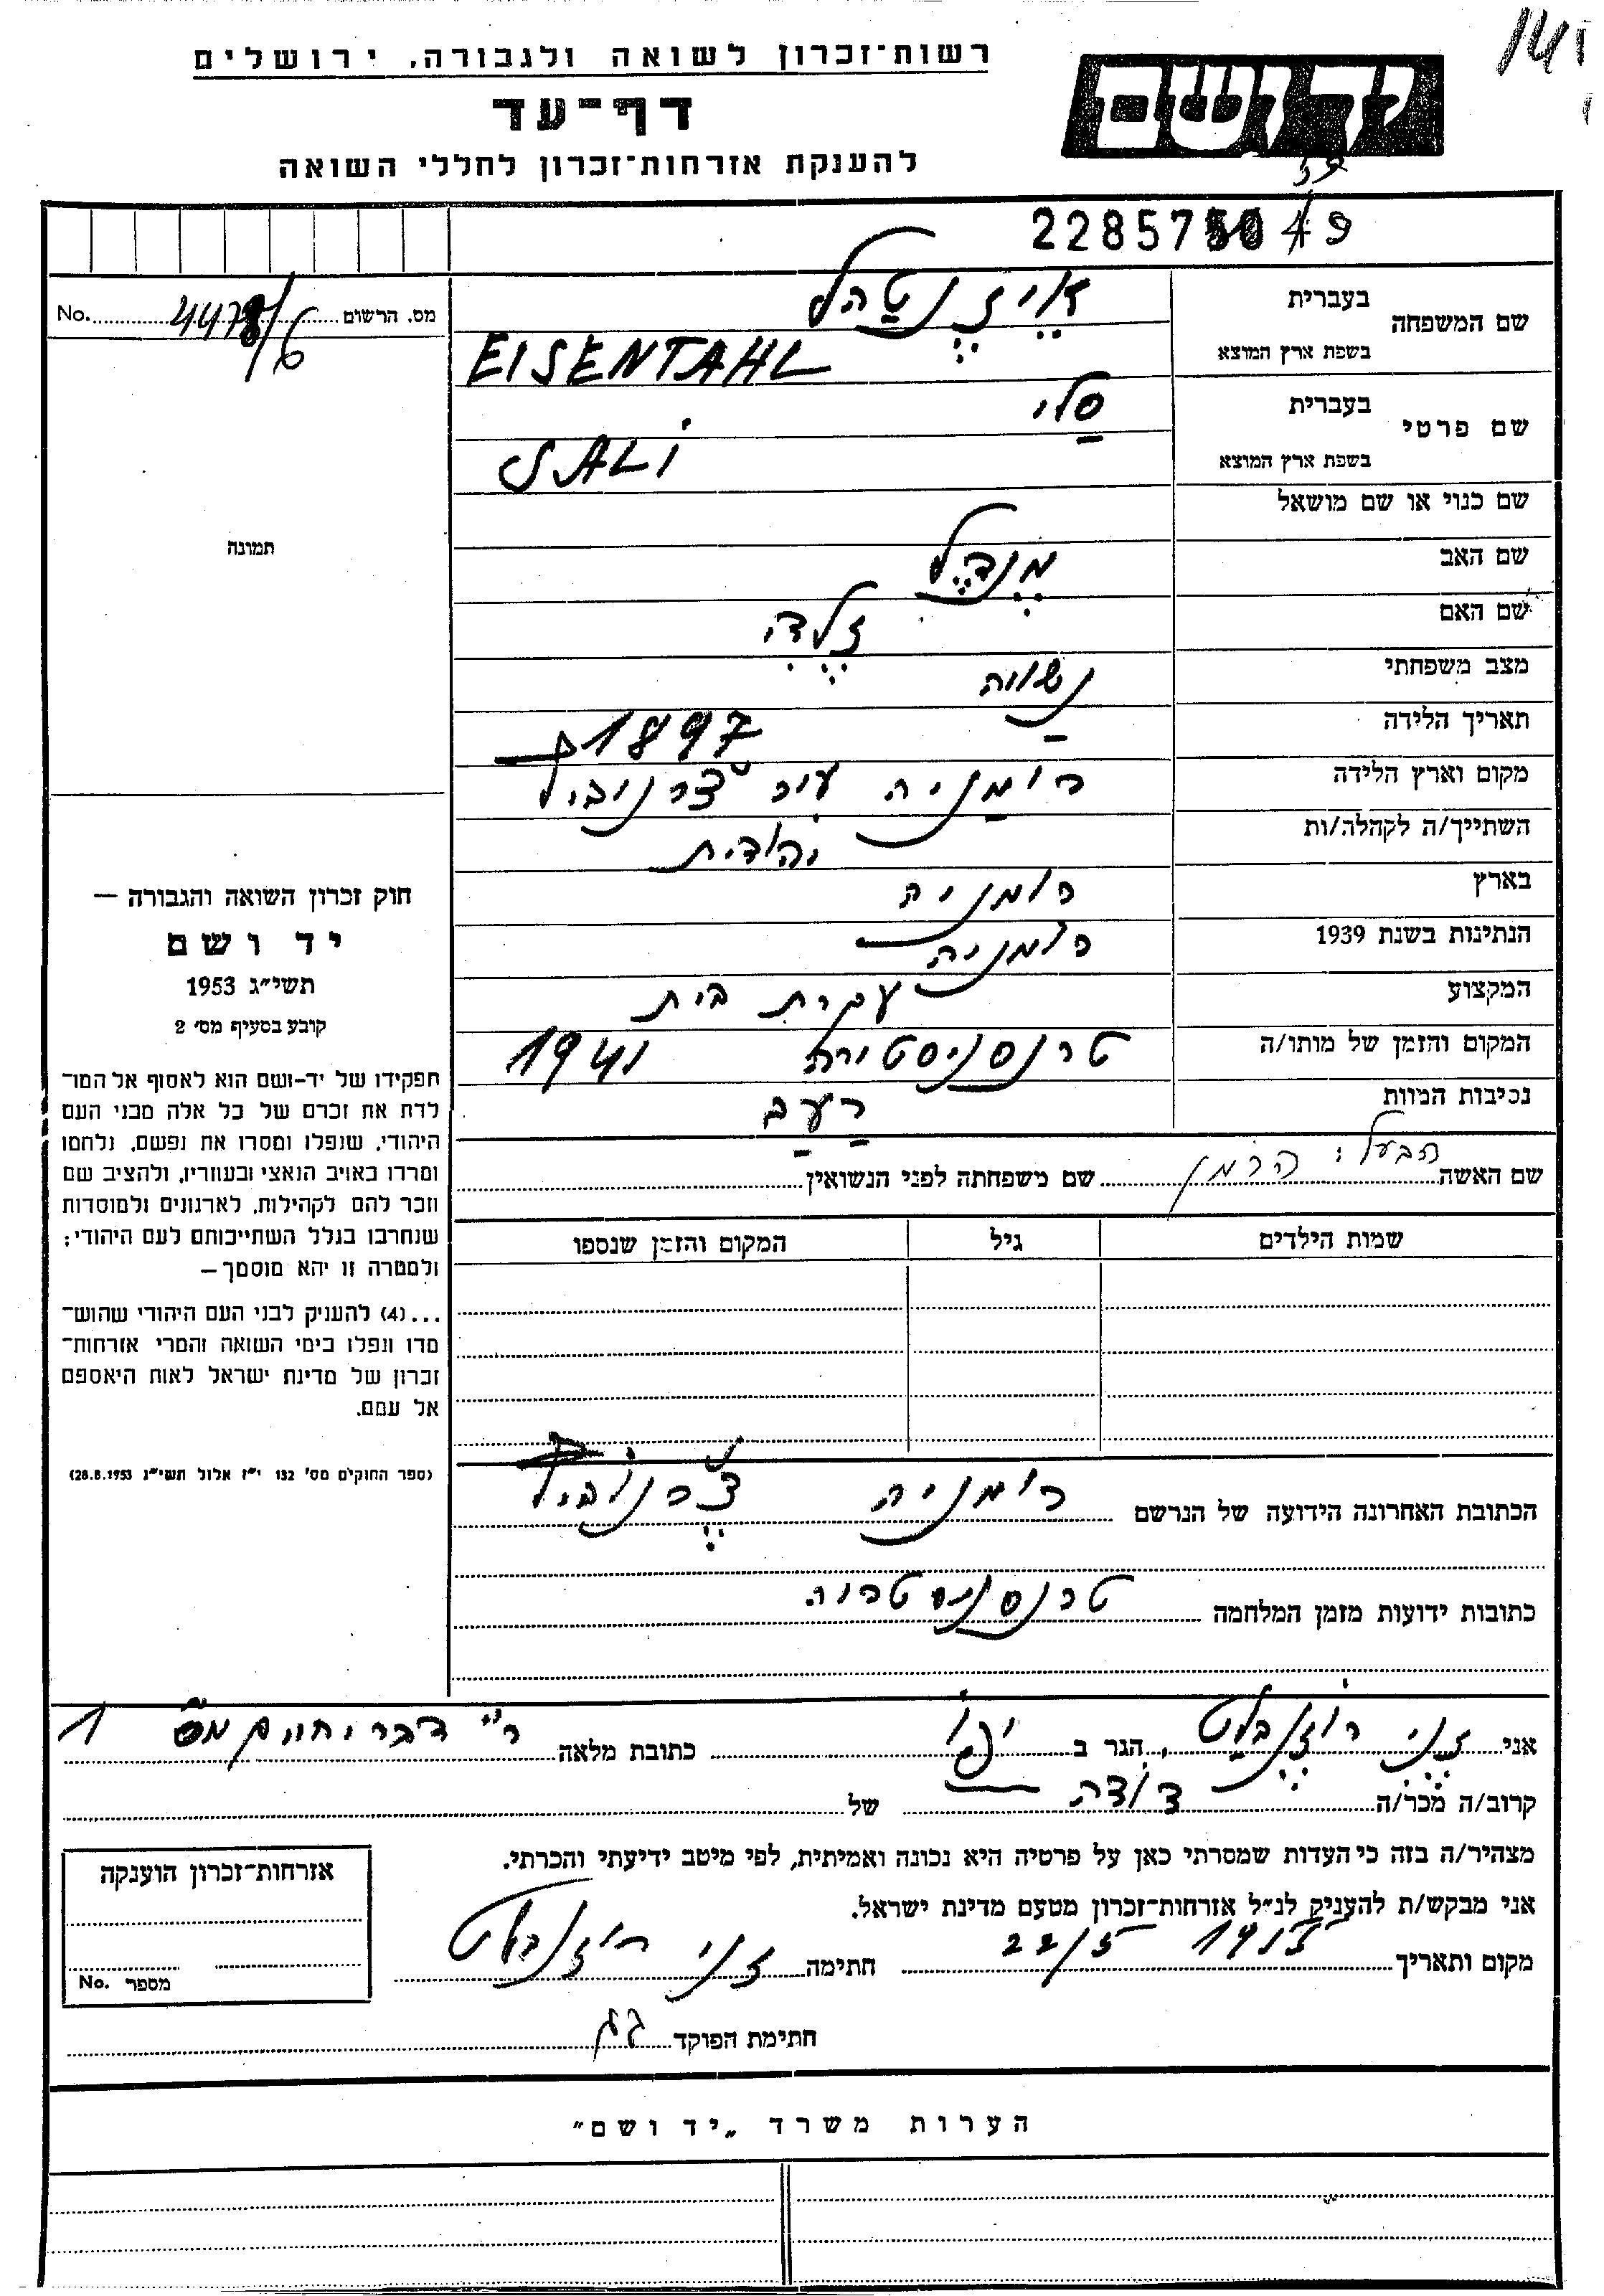 רשות־זכרון לשואה ולגבורה, ירושלים
יד ושם
דף־עד
להענקת אזרחות־זכרון לחללי השואה
22857
שם המשפחה
בעברית איזנטהל
בשפת ארץ המוצא EISENTAHL
שם פרטי
בעברית סלי
בשפת ארץ המוצא SALI
שם כנוי או שם מושאל
שם האב מנדל
שם האם זלדה
מצב משפחתי נשואה
תאריך הלידה 1897
מקום וארץ הלידה רומניה עיר צרנוביץ
השתייך/ה לקהלה/ות יהודית
בארץ רומניה
הנתינות בשנת 1939 רומניה
המקצוע עקרת בית
המקום והזמן של מותו/ה טרנסניסטריה 1941
נסיבות המוות רעב
שם האשה הבעל: הרמן שם משפחתה לפני הנשואין
שמות הילדים גיל המקום והזמן שנספו
הכתובת האחרונה הידועה של הנרשם רומניה צרנוביץ
כתובות ידועות מזמן המלחמה טרנסניסטריה
No. 4478/6 מס. הרשום
תמונה
חוק זכרון השואה והגבורה —
יד ושם
תשי״ג 1953
קובע בסעיף מס׳ 2
תפקידו של יד-ושם הוא לאסוף אל המו־
לדת את זכרם של כל אלה מבני העם
היהודי, שנפלו ומסרו את נפשם, נלחמו
ומרדו באויב הנאצי ובעוזריו, ולהציב שם
וזכר להם לקהילות, לארגונים ולמוסדות
שנחרבו בגלל השתייכותם לעם היהודי;
ולמטרה זו יהא מוסמך —
...(4) להעניק לבני העם היהודי שהוש־
מדו ונפלו בימי השואה והמרי אזרחות־
זכרון של מדינת ישראל לאות היאספם
אל עמם.
(ספר החוקים מס׳ 132 י״ז אלול תשי״ג 28.8.1953)
אני זני רוזנבלט הגר ב יפו כתובת מלאה 1
קרוב/ה מכר/ה דודה של
מצהיר/ה בזה כי העדות שמסרתי כאן על פרטיה היא נכונה ואמיתית, לפי מיטב ידיעתי והכרתי.
אני מבקש/ת להעניק לנ״ל אזרחות־זכרון מטעם מדינת ישראל.
מקום ותאריך 22/5 חתימה זני רוזנבלט
חתימת הפוקד
אזרחות־זכרון הוענקה
מספר No.
הערות משרד „יד ושם״